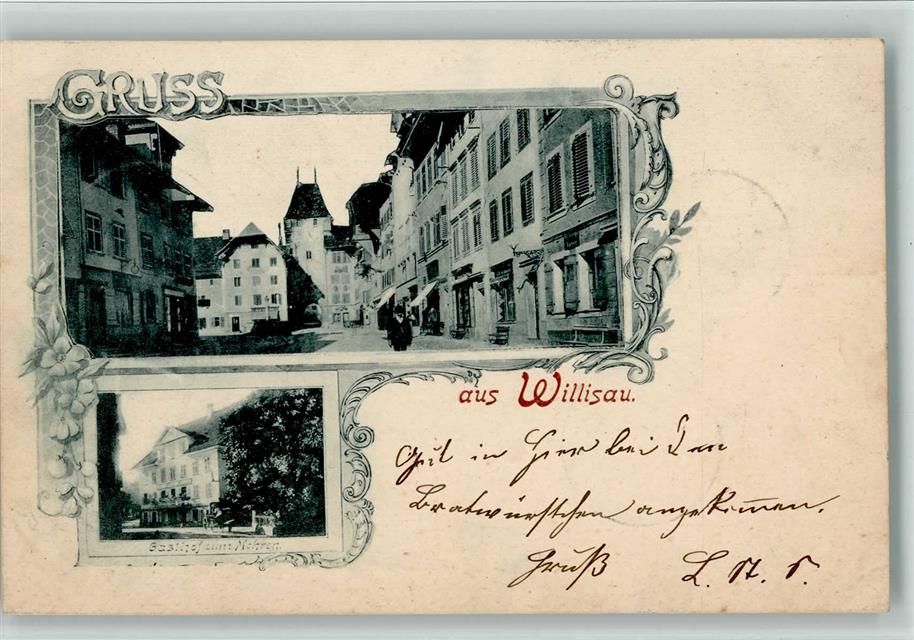 GRUSS
aus Willisau.
Gasthof zum Mohren
Gut in Hier bei
Bratwürstchen angekommen.
Gruß L. St.